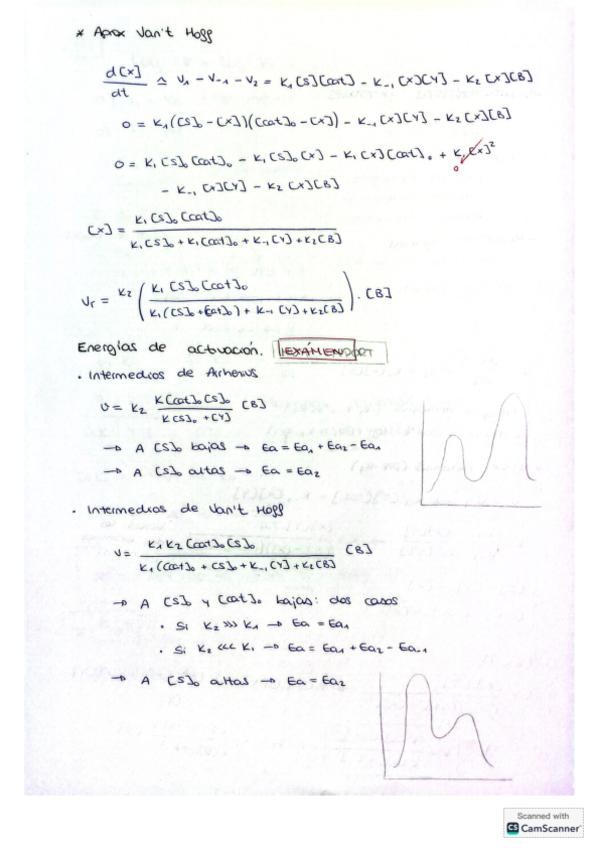 * Aprox Van't Hoff
d[x]/dt ≃ V₁ - V₋₁ - V₂ = K₁[S][cat] - K₋₁[x][Y] - K₂[x][B]
0 = K₁([S]₀ - [x])([cat]₀ - [x]) - K₋₁[x][Y] - K₂[x][B]
0 = K₁[S]₀[cat]₀ - K₁[S]₀[x] - K₁[x][cat]₀ + K₁[x]² 0
- K₋₁[x][Y] - K₂[x][B]
[x] = K₁[S]₀[cat]₀ / K₁[S]₀ + K₁[cat]₀ + K₋₁[Y] + K₂[B]
Vr = K₂ ( K₁[S]₀[cat]₀ / K₁([S]₀ + [cat]₀) + K₋₁[Y] + K₂[B] ) · [B]
Energías de activación. EXÁMEN
· Intermedios de Arhenius
V = K₂ K[cat]₀[S]₀ / K[S]₀ + [Y] [B]
→ A [S]₀ bajas → Ea = Ea₁ + Ea₂ - Ea₁
→ A [S]₀ altas → Ea = Ea₂
· Intermedios de Van't Hoff
V = K₁K₂[cat]₀[S]₀ / K₁([cat]₀ + [S]₀ + K₋₁[Y] + K₂[B] [B]
→ A [S]₀ y [cat]₀ bajas: dos casos
· Si K₂ >>> K₁ → Ea = Ea₁
· Si K₂ <<< K₁ → Ea = Ea₁ + Ea₂ - Ea₋₁
→ A [S]₀ altas → Ea = Ea₂
Scanned with
CS CamScanner